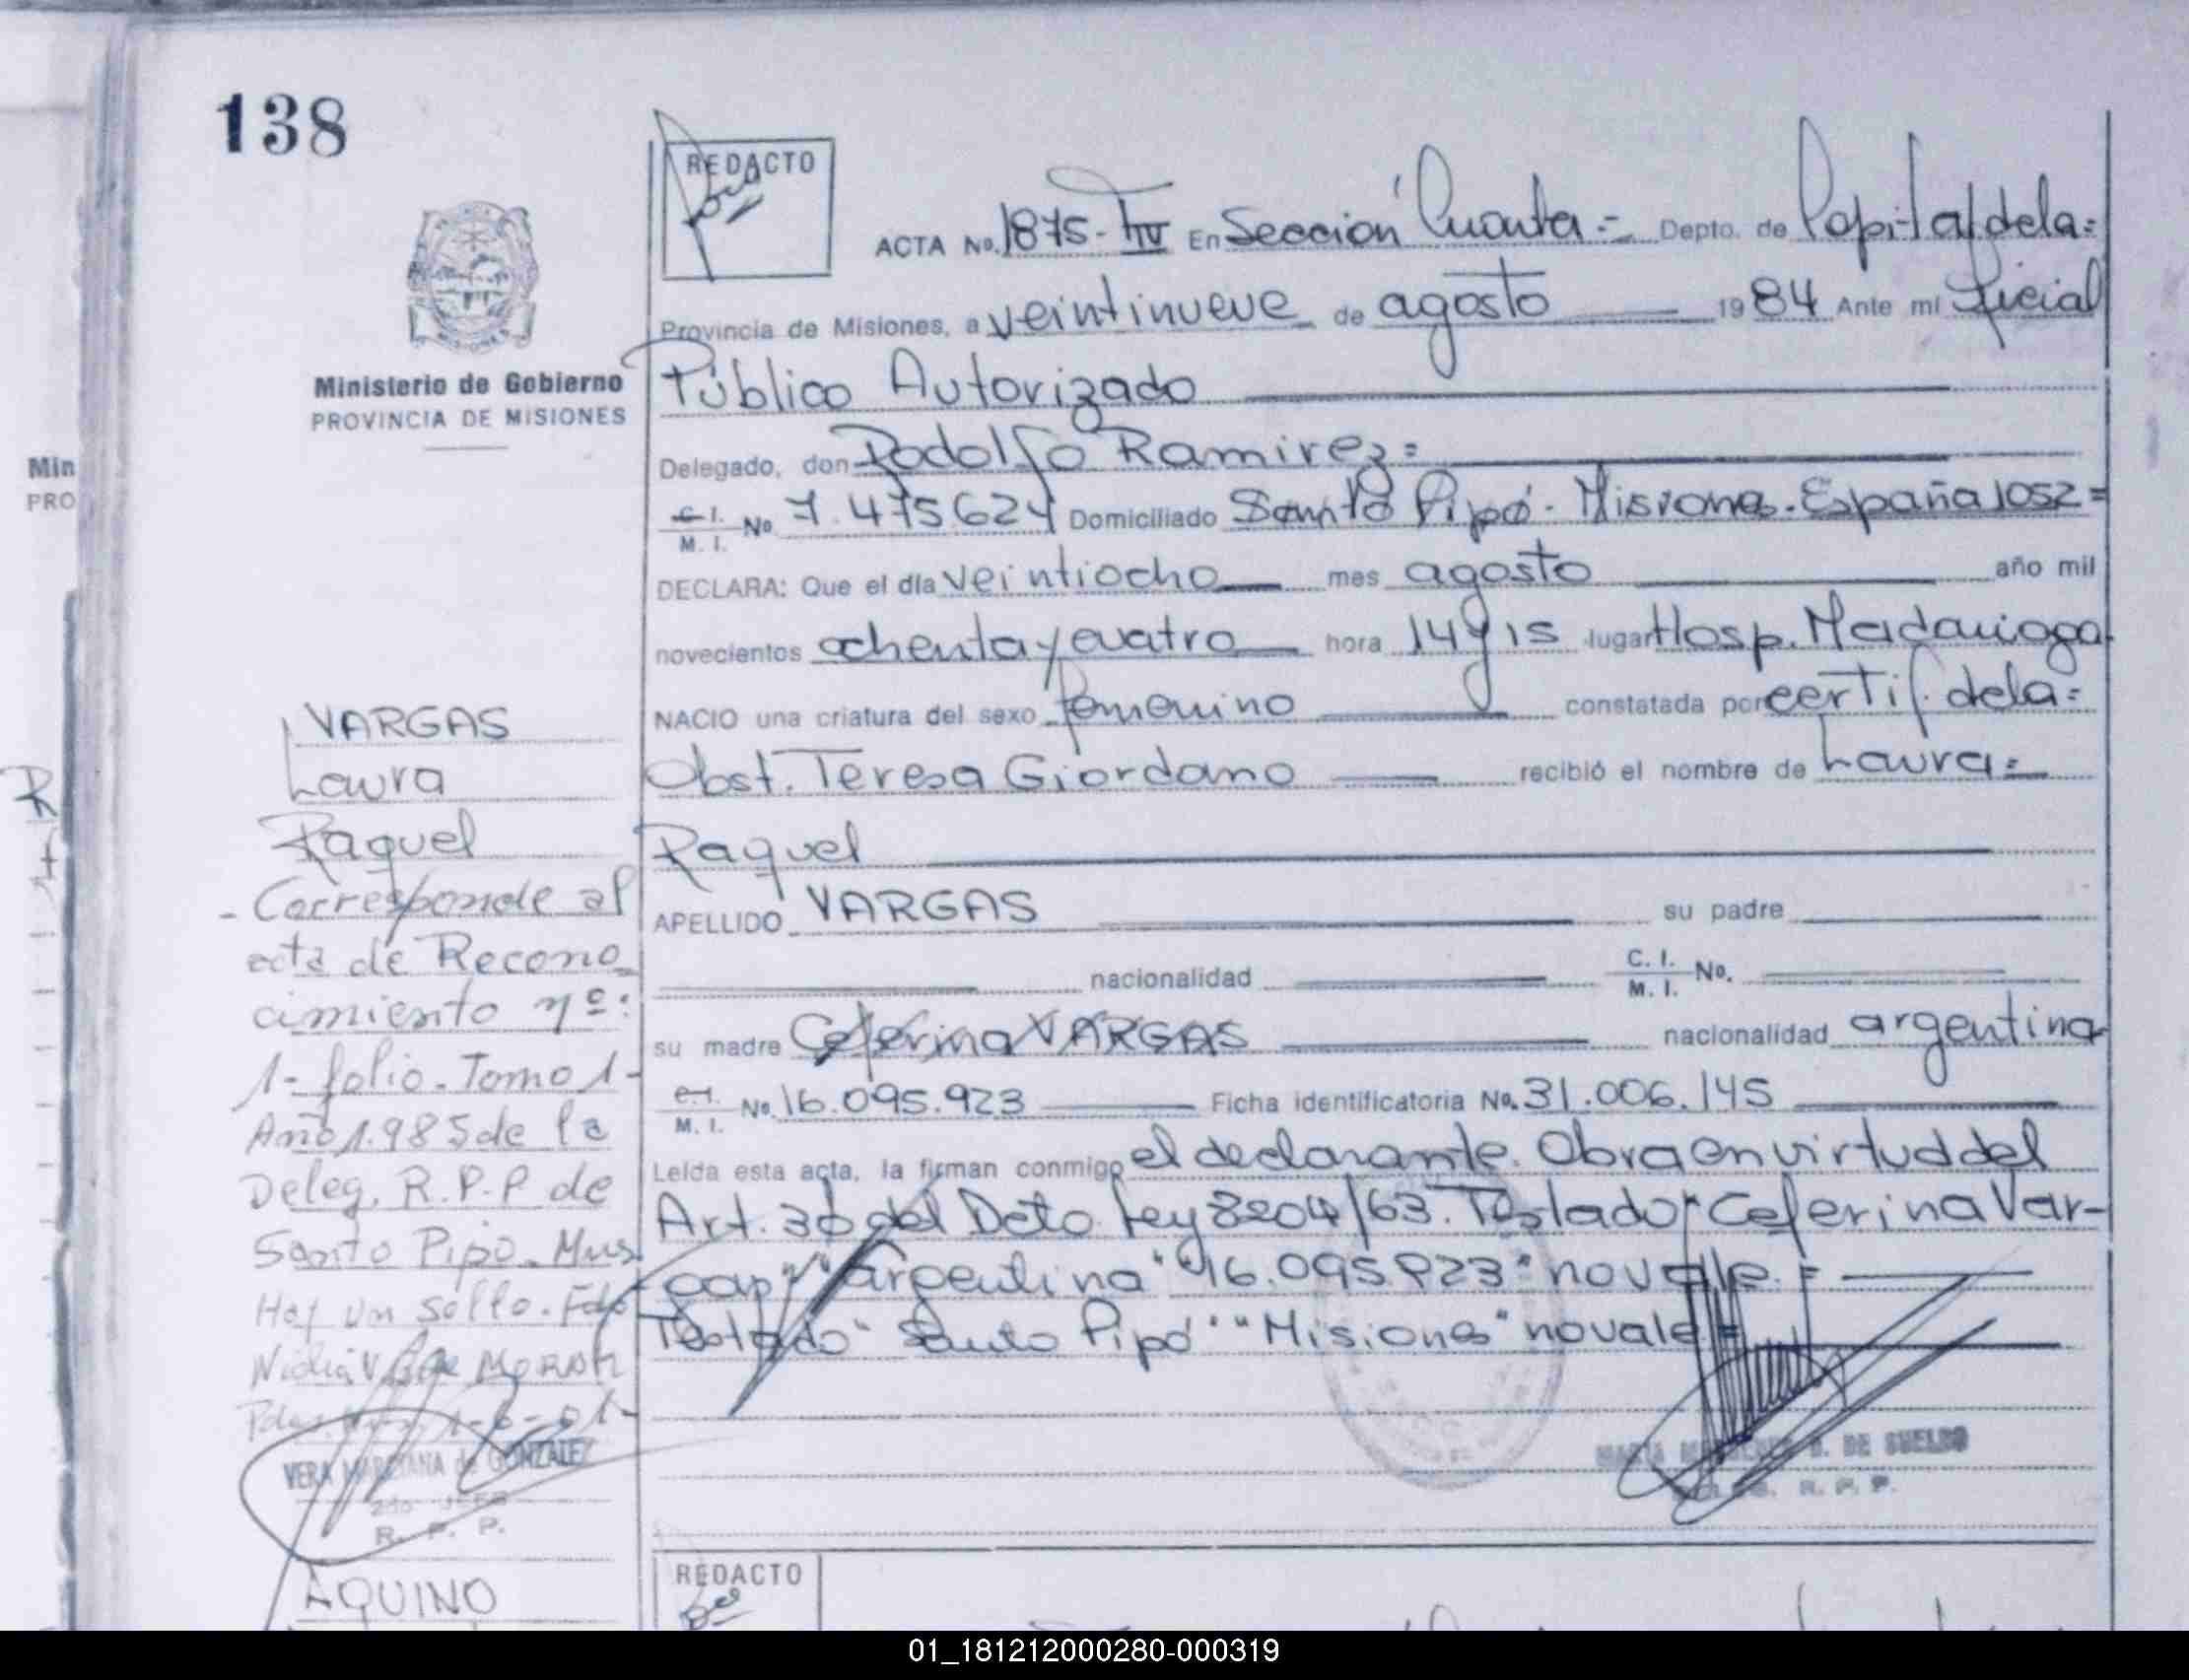 138
REDACTO
ACTA No. 1875-IV En Sección Cuarta = Depto. de Capital de la =
Provincia de Misiones, a veintinueve de agosto 1984 Ante mi Oficial
Público Autorizado
Delegado, don Rodolfo Ramirez =
C. I. M. I. No 7.475624 Domiciliado Santo Pipó - Misiones. España 1052 =
DECLARA: Que el día veintiocho mes agosto año mil
novecientos ochenta y cuatro hora 14 y 15 lugar Hosp. Madariaga
NACIO una criatura del sexo femenino constatada por certif. de la =
Obst. Teresa Giordano recibió el nombre de Laura =
Raquel
APELLIDO VARGAS su padre
nacionalidad C. I. M. I. No.
su madre Ceferina VARGAS nacionalidad argentina
C. I. M. I. No. 16.095.923 Ficha identificatoria No. 31.006.145
Leída esta acta, la firman conmigo el declarante. Obra en virtud del
Art. 36 del Dcto. Ley 8204/63. Testado "Ceferina Var-
gas" "argentina" "16.095923" no vale. =
Testado "Santo Pipó" "Misiones" no vale =
DE SUELDO
R. P. P.
Ministerio de Gobierno
PROVINCIA DE MISIONES
VARGAS
Laura
Raquel
- Corresponde al
acta de Recono
cimiento nº:
1- folio. Tomo 1-
Año 1.985 de la
Deleg. R.P.P de
Santo Pipó. Mnes
Hay un sello. Fdo
VERA MARCIANA de GONZALEZ
2do JEFE
R. P. P.
AQUINO
REDACTO
Min
PRO
01_181212000280-000319